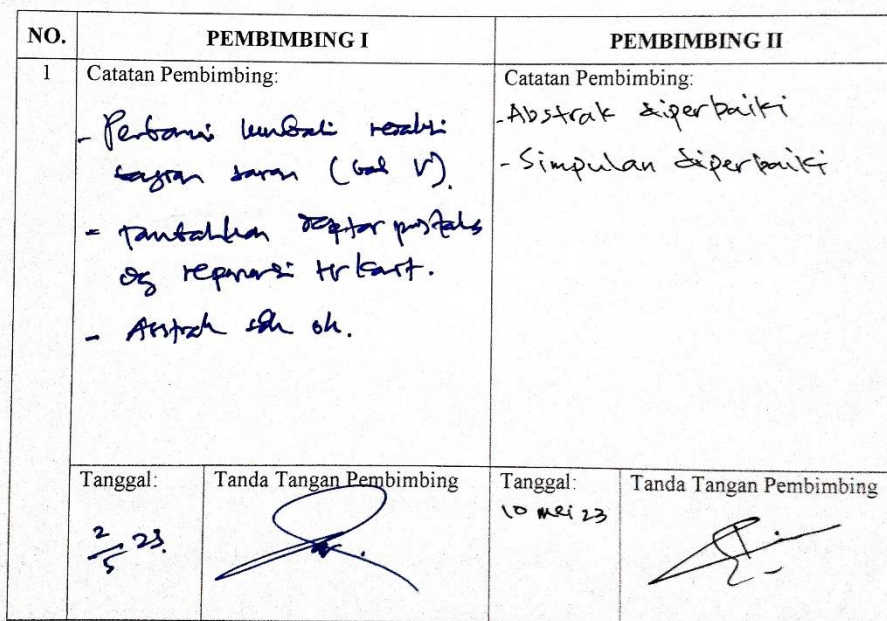 NO.
PEMBIMBING I
PEMBIMBING II
1
Catatan Pembimbing:
- Perbaiki kembali redaksi
saran (Bab V).
- Tambahkan daftar pustaka
dg referensi terkait.
- Abstrak sdh ok.
Catatan Pembimbing:
- Abstrak diperbaiki
- Simpulan diperbaiki
Tanggal:
2/5 23.
Tanda Tangan Pembimbing
Tanggal:
10 mei 23
Tanda Tangan Pembimbing